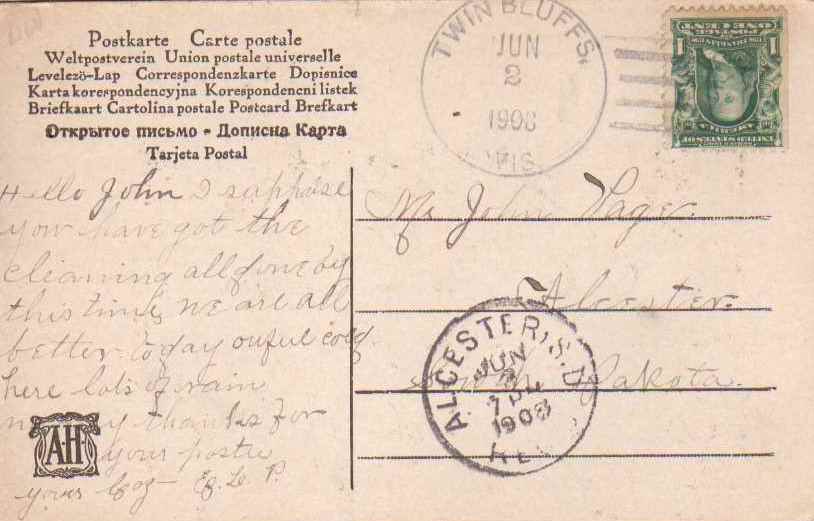 Postkarte Carte postale
Weltpostverein Union postale universelle
Levelező-Lap Correspondenzkarte Dopisnice
Karta korespondencyjna Korespondencni listek
Briefkaart Cartolina postale Postcard Brefkart
Открытое письмо - Дописна Карта
Tarjeta Postal
TWIN BLUFFS,
JUN
2
1908
WIS
POSTAGE
ONE CENT
1
1
Hello John I suppose
you have got the
cleaning all done by
this time we are all
better today ouful cold
here lots of rain
many thanks for
your postu
yours
A·H
Mr John Pager.
Alcester.
South Dakota.
ALCESTER, S.D.
JUN
1908